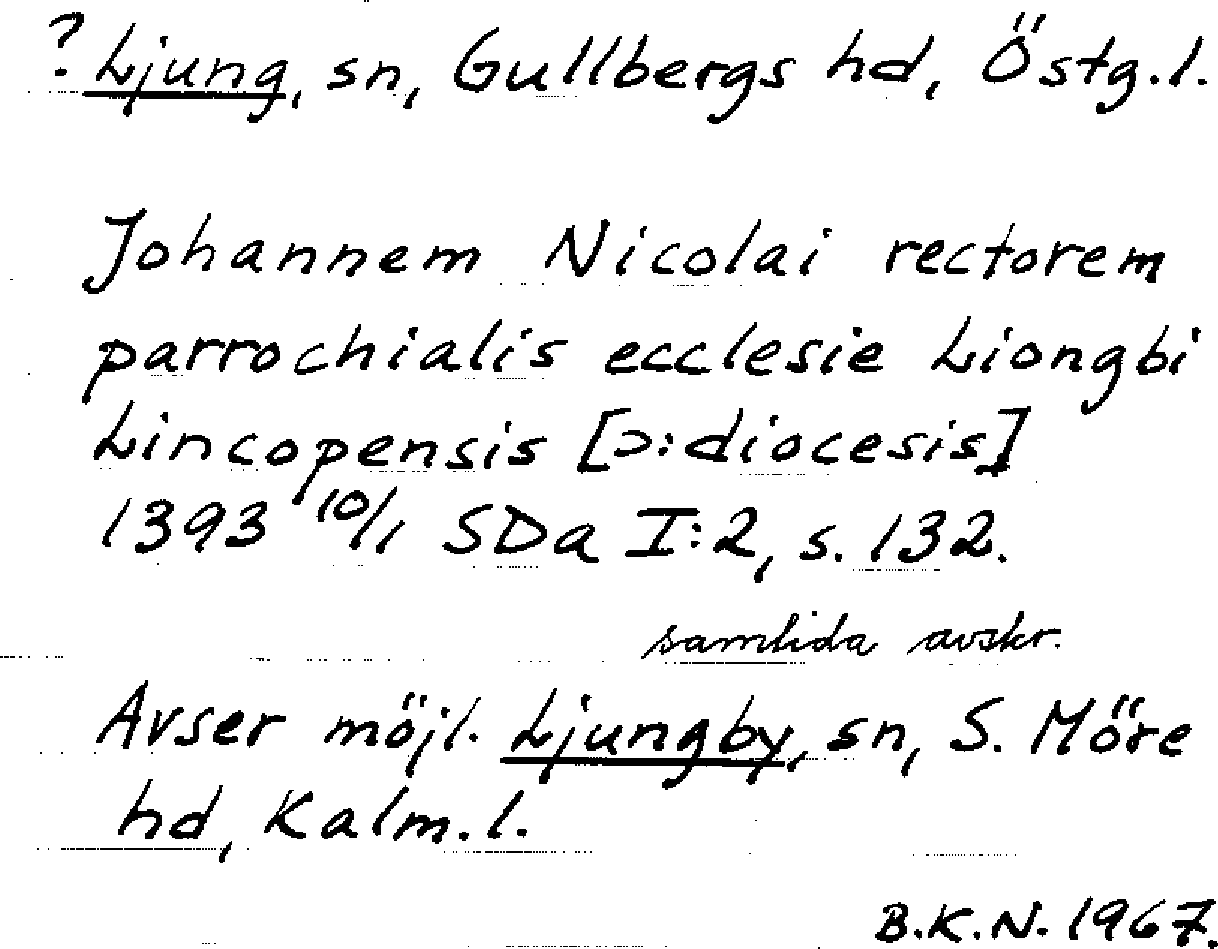 ? Ljung, sn, Gullbergs hd, Östg.l.
Johannem Nicolai rectorem
parrochialis ecclesie Liongbi
Lincopensis [ɔ:diocesis]
1393 10/1 SDa I:2, s. 132.
samtida avskr.
Avser möjl. Ljungby, sn, S. Möre
hd, Kalm.l.
B.K.N. 1967.